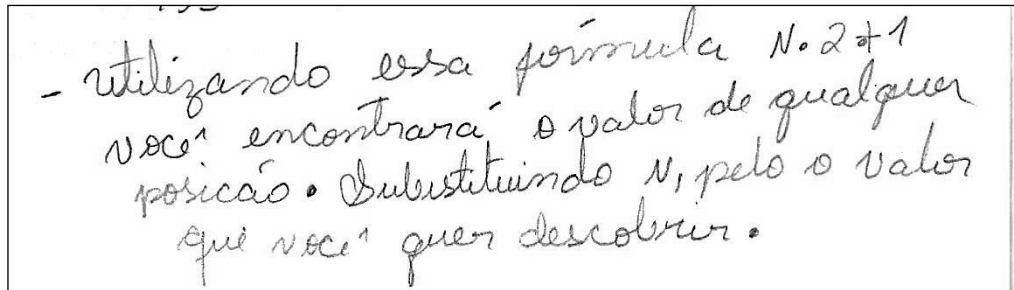 - Utilizando essa fórmula N.2+1
você encontrará o valor de qualquer
posicão. Substituindo N, pelo o valor
que você quer descobrir.